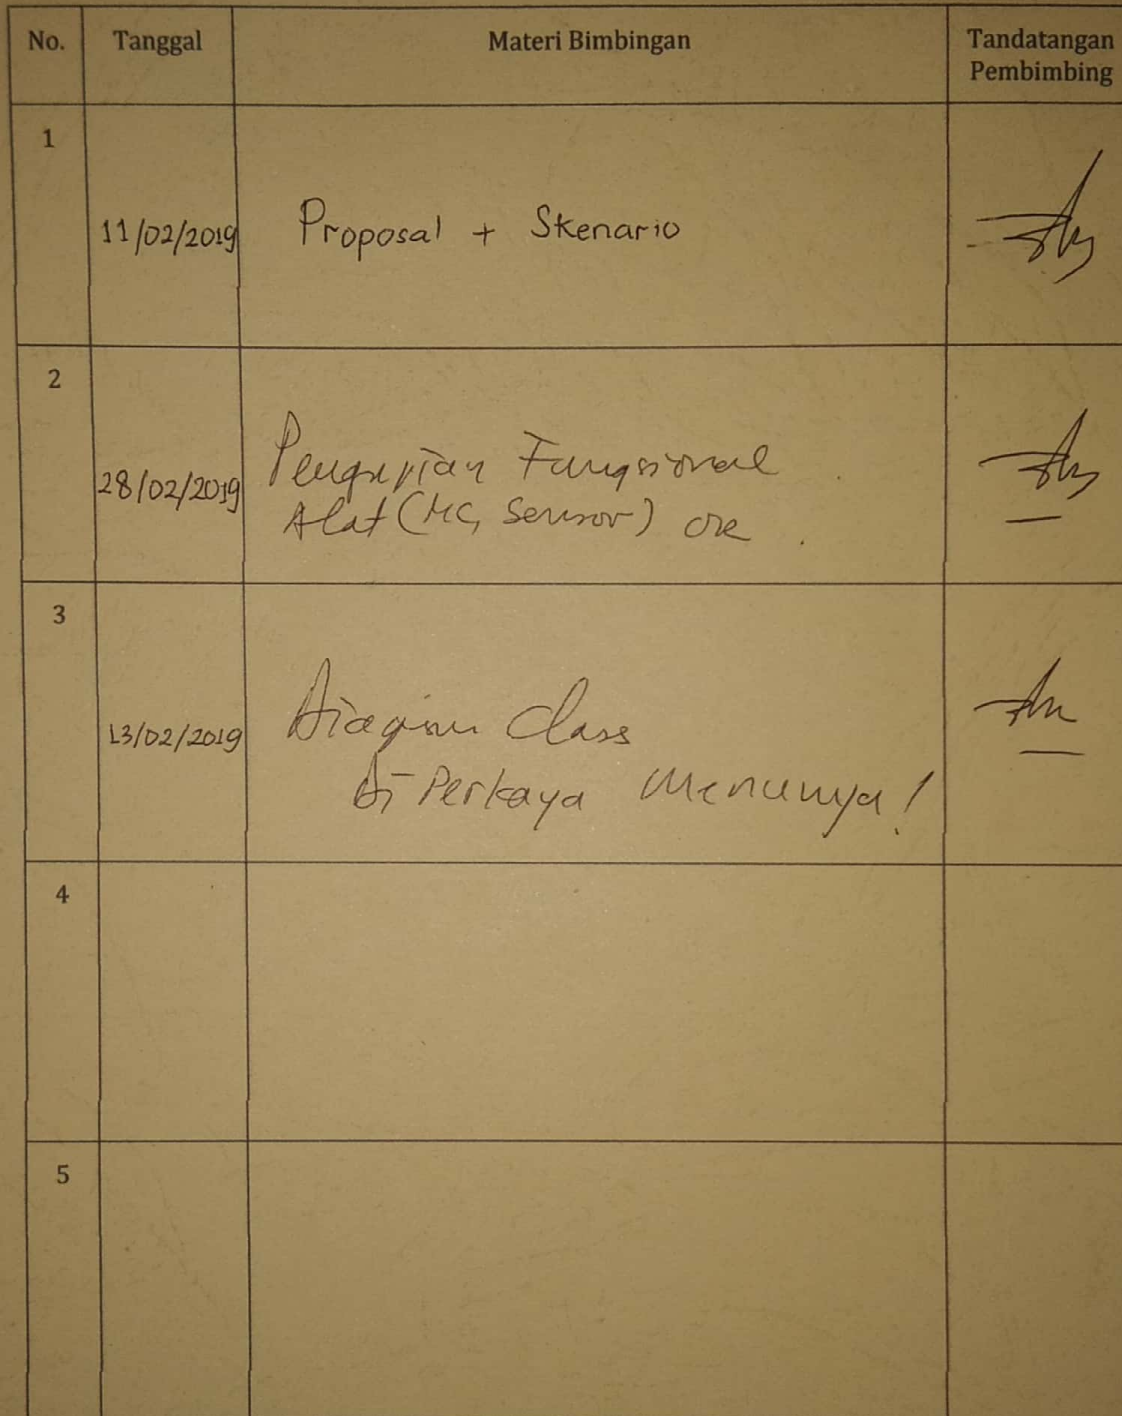 No. Tanggal Materi Bimbingan Tandatangan
Pembimbing
1
11/02/2019 Proposal + Skenario
2
28/02/2019 Pengujian Fungsional
Alat (MC, Sensor) oke
3
13/02/2019 Diagram Class
di Perkaya Menunya!
4
5